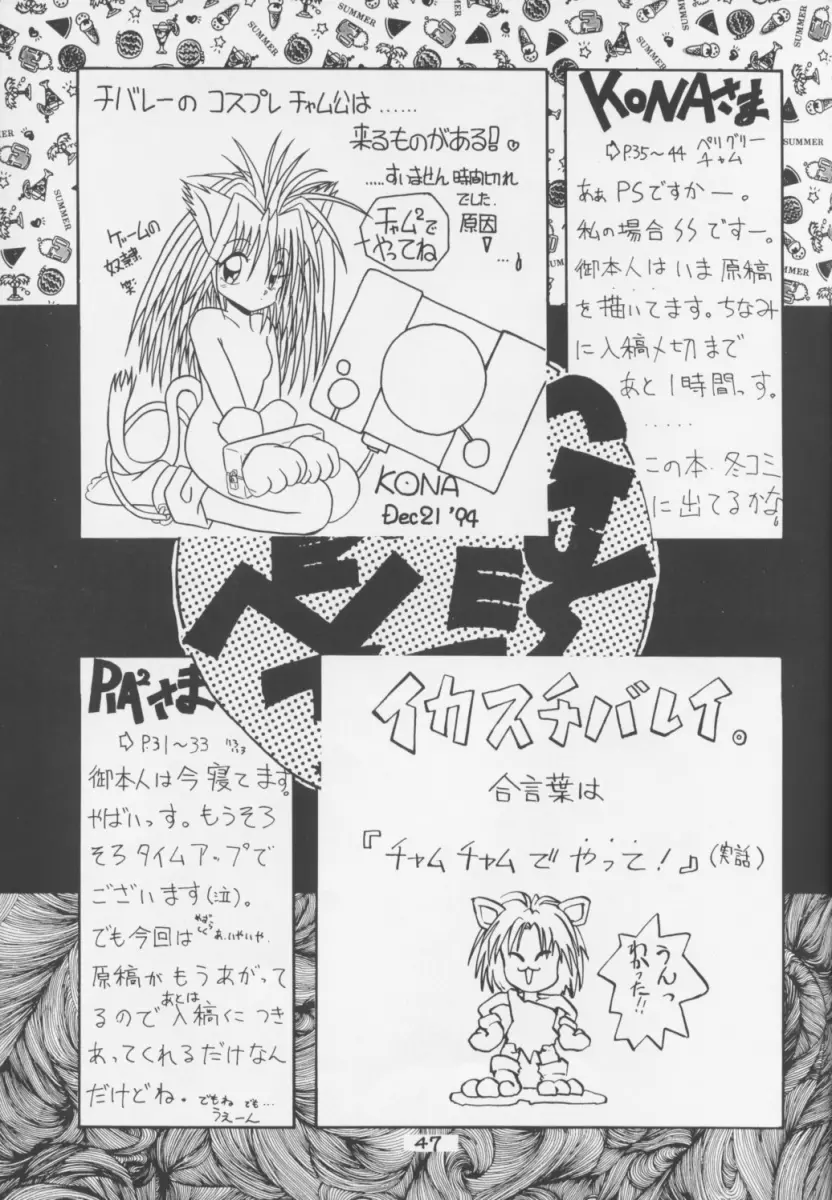 チバレーの コスプレ チャム公は……
来るものがある!!
.....すいません 時間切れ
でした.
原因
チャム²で
やってね
ゲームの
奴隷
笑
KONA
Dec 21 '94
KONAさま
⇨P.35〜44 ペリグリー
チャム
あぁ PSですかー。
私の場合SSですー。
御本人はいま原稿
を描いてます。ちなみ
に入稿〆切まで
あと1時間っす。
.....
この本、冬コミ
に出てるかな
PIA²さま
⇨P.31〜33
御本人は今寝てます。
やばいっす。もうそろ
そろタイムアップで
ございます(泣)。
でも今回は
あ、いやいや
原稿がもうあがって
るのであとは入稿につき
あってくれるだけなん
だけどね。でもね でも…
うえーん
イカスチバレイ。
合言葉は
『チャムチャムで やって!』(実話)
うんっ
わかった!!
SUMMER
SUMMER
SUMMER
SUMMER
47